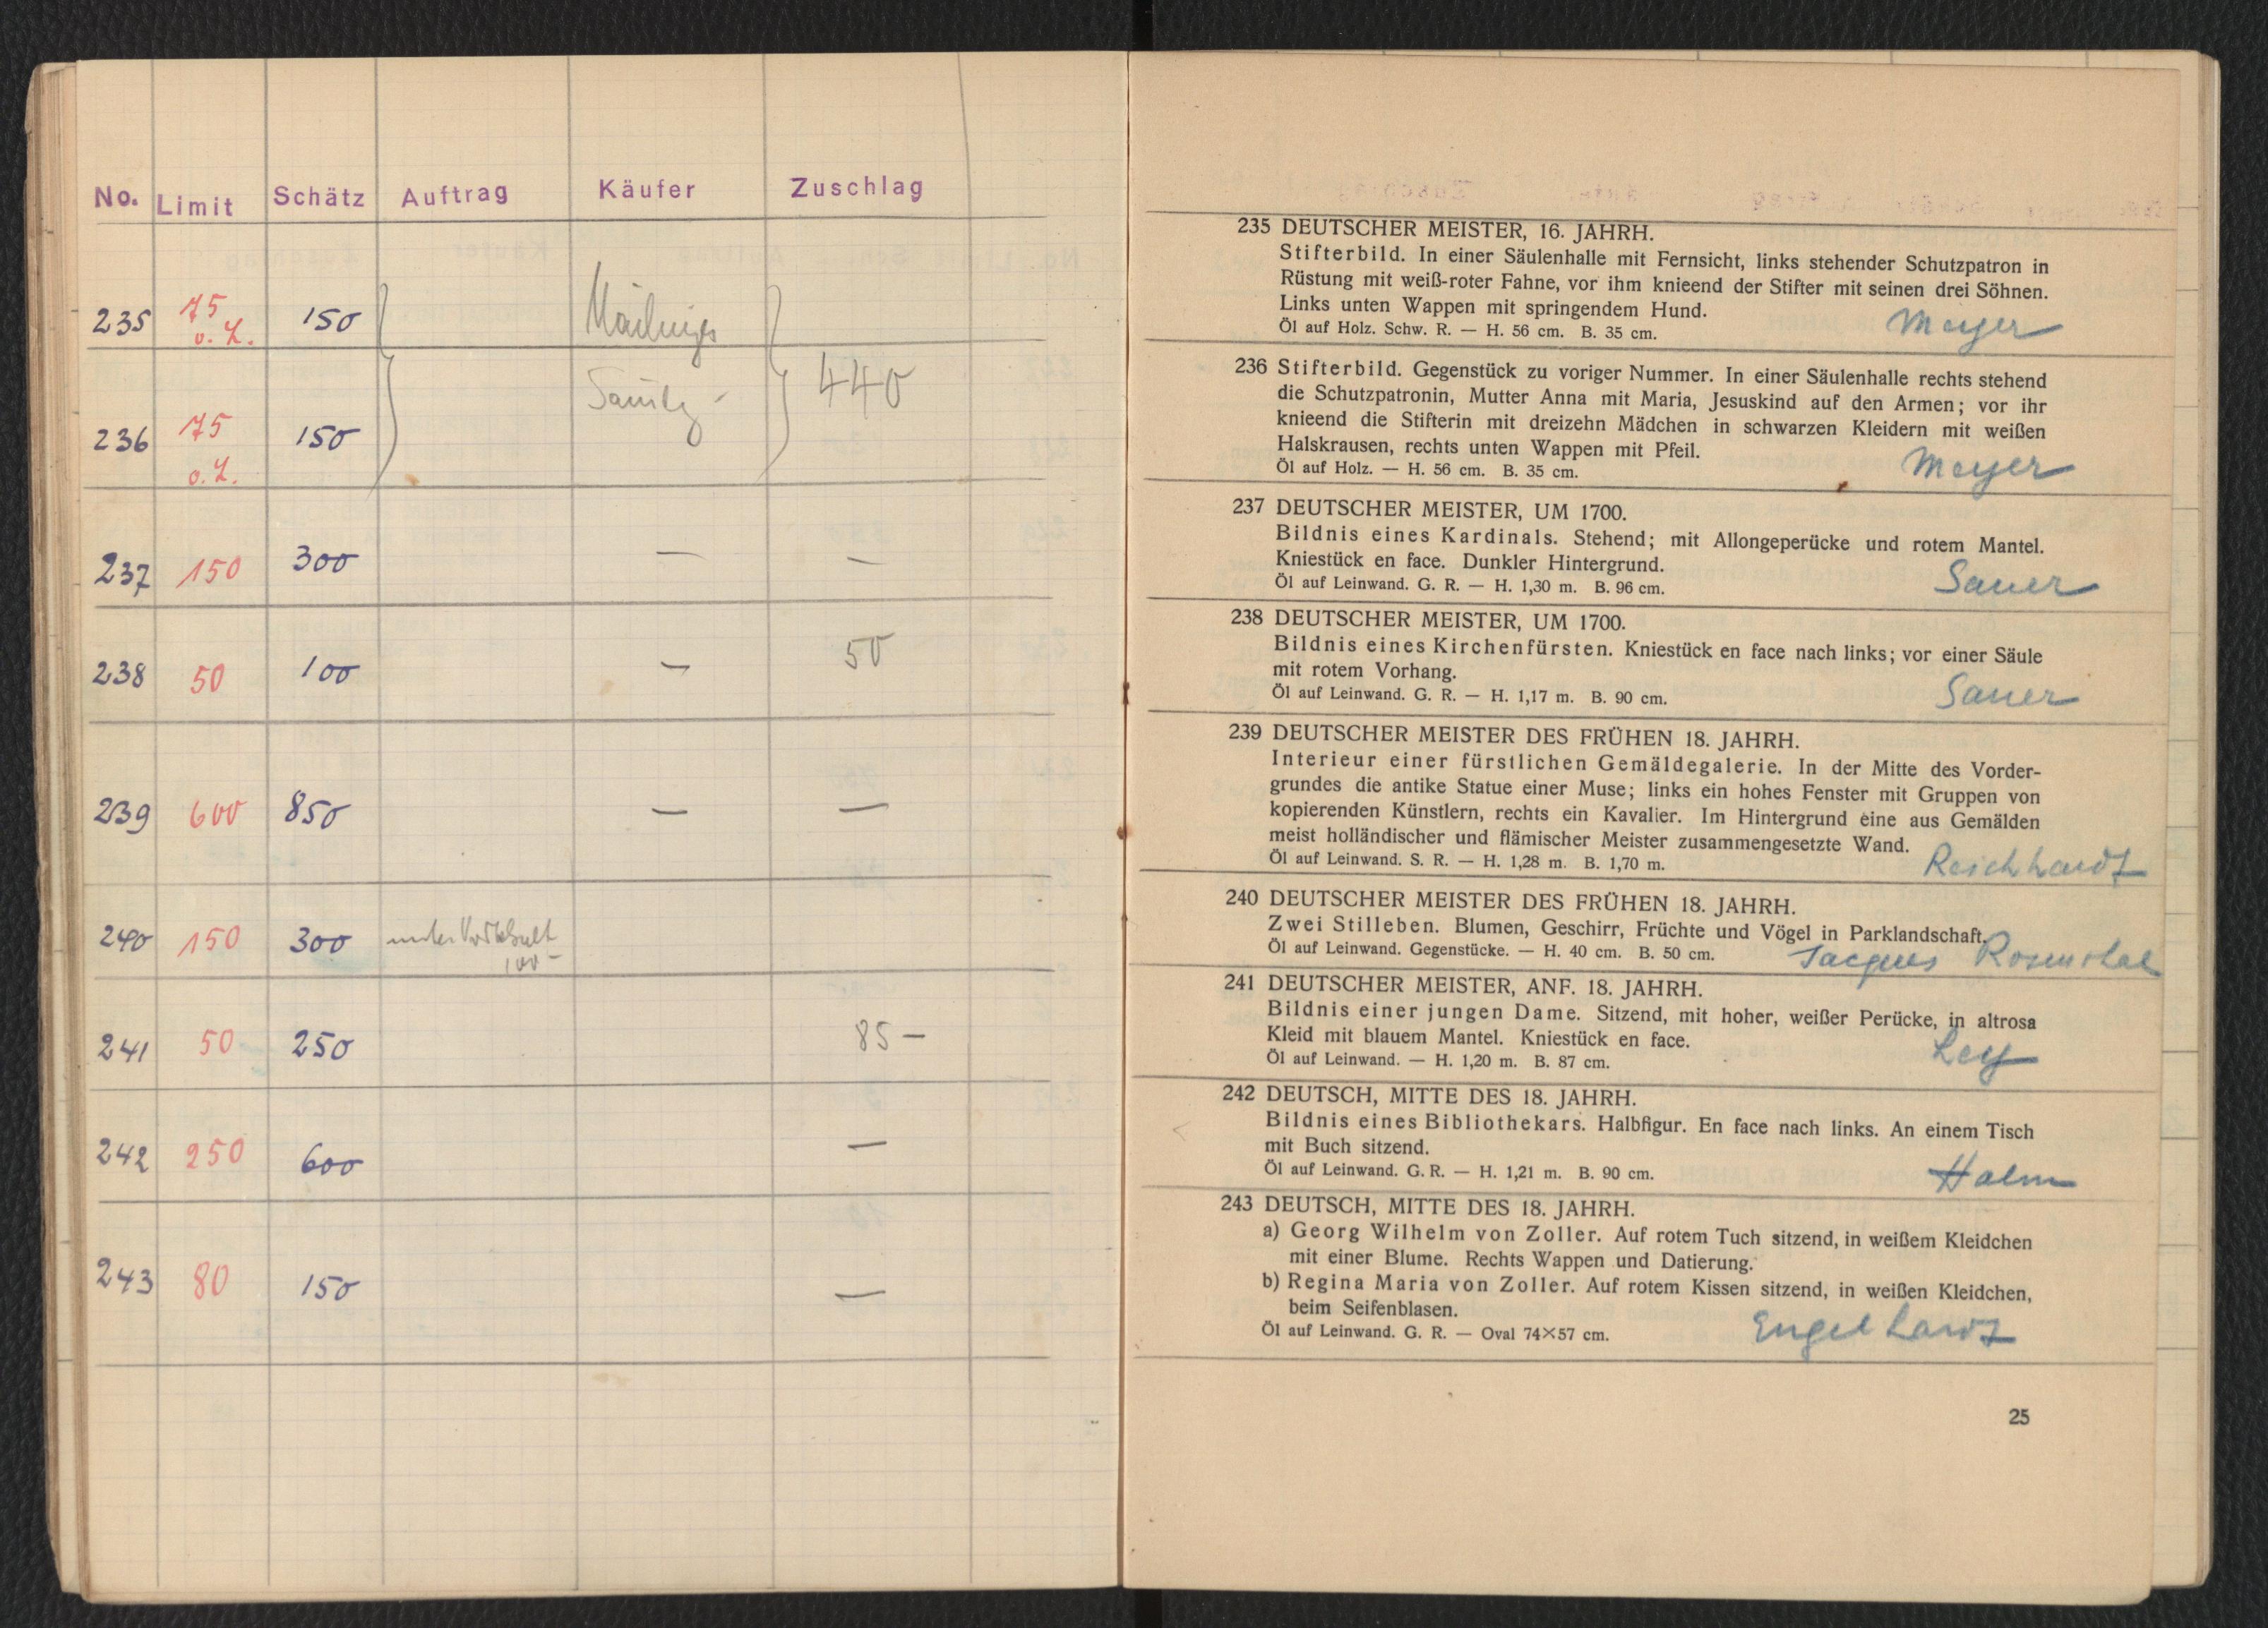 No. Limit Schätz Auftrag Käufer Zuschlag
235 75 150
o. L.
440
236 75 150
o. L.
237 150 300 — —
238 50 100 — 50
239 600 850 — —
240 150 300 unter Vorbehalt
100 –
241 50 250 85 –
242 250 600 —
243 80 150 —
235 DEUTSCHER MEISTER, 16. JAHRH.
Stifterbild. In einer Säulenhalle mit Fernsicht, links stehender Schutzpatron in
Rüstung mit weiß-roter Fahne, vor ihm knieend der Stifter mit seinen drei Söhnen.
Links unten Wappen mit springendem Hund.
Öl auf Holz. Schw. R. — H. 56 cm. B. 35 cm. Meyer
236 Stifterbild. Gegenstück zu voriger Nummer. In einer Säulenhalle rechts stehend
die Schutzpatronin, Mutter Anna mit Maria, Jesuskind auf den Armen; vor ihr
knieend die Stifterin mit dreizehn Mädchen in schwarzen Kleidern mit weißen
Halskrausen, rechts unten Wappen mit Pfeil.
Öl auf Holz. — H. 56 cm. B. 35 cm. Meyer
237 DEUTSCHER MEISTER, UM 1700.
Bildnis eines Kardinals. Stehend; mit Allongeperücke und rotem Mantel.
Kniestück en face. Dunkler Hintergrund.
Öl auf Leinwand. G. R. — H. 1,30 m. B. 96 cm. Sauer
238 DEUTSCHER MEISTER, UM 1700.
Bildnis eines Kirchenfürsten. Kniestück en face nach links; vor einer Säule
mit rotem Vorhang.
Öl auf Leinwand. G. R. — H. 1,17 m. B. 90 cm. Sauer
239 DEUTSCHER MEISTER DES FRÜHEN 18. JAHRH.
Interieur einer fürstlichen Gemäldegalerie. In der Mitte des Vorder-
grundes die antike Statue einer Muse; links ein hohes Fenster mit Gruppen von
kopierenden Künstlern, rechts ein Kavalier. Im Hintergrund eine aus Gemälden
meist holländischer und flämischer Meister zusammengesetzte Wand.
Öl auf Leinwand. S. R. — H. 1,28 m. B. 1,70 m. Reichhardt
240 DEUTSCHER MEISTER DES FRÜHEN 18. JAHRH.
Zwei Stilleben. Blumen, Geschirr, Früchte und Vögel in Parklandschaft.
Öl auf Leinwand. Gegenstücke. — H. 40 cm. B. 50 cm. Jacques Rosenthal
241 DEUTSCHER MEISTER, ANF. 18. JAHRH.
Bildnis einer jungen Dame. Sitzend, mit hoher, weißer Perücke, in altrosa
Kleid mit blauem Mantel. Kniestück en face.
Öl auf Leinwand. — H. 1,20 m. B. 87 cm. Ley
242 DEUTSCH, MITTE DES 18. JAHRH.
Bildnis eines Bibliothekars. Halbfigur. En face nach links. An einem Tisch
mit Buch sitzend.
Öl auf Leinwand. G. R. — H. 1,21 m. B. 90 cm. Halm
243 DEUTSCH, MITTE DES 18. JAHRH.
a) Georg Wilhelm von Zoller. Auf rotem Tuch sitzend, in weißem Kleidchen
mit einer Blume. Rechts Wappen und Datierung.
b) Regina Maria von Zoller. Auf rotem Kissen sitzend, in weißen Kleidchen,
beim Seifenblasen.
Öl auf Leinwand. G. R. — Oval 74×57 cm. Engelhardt
25